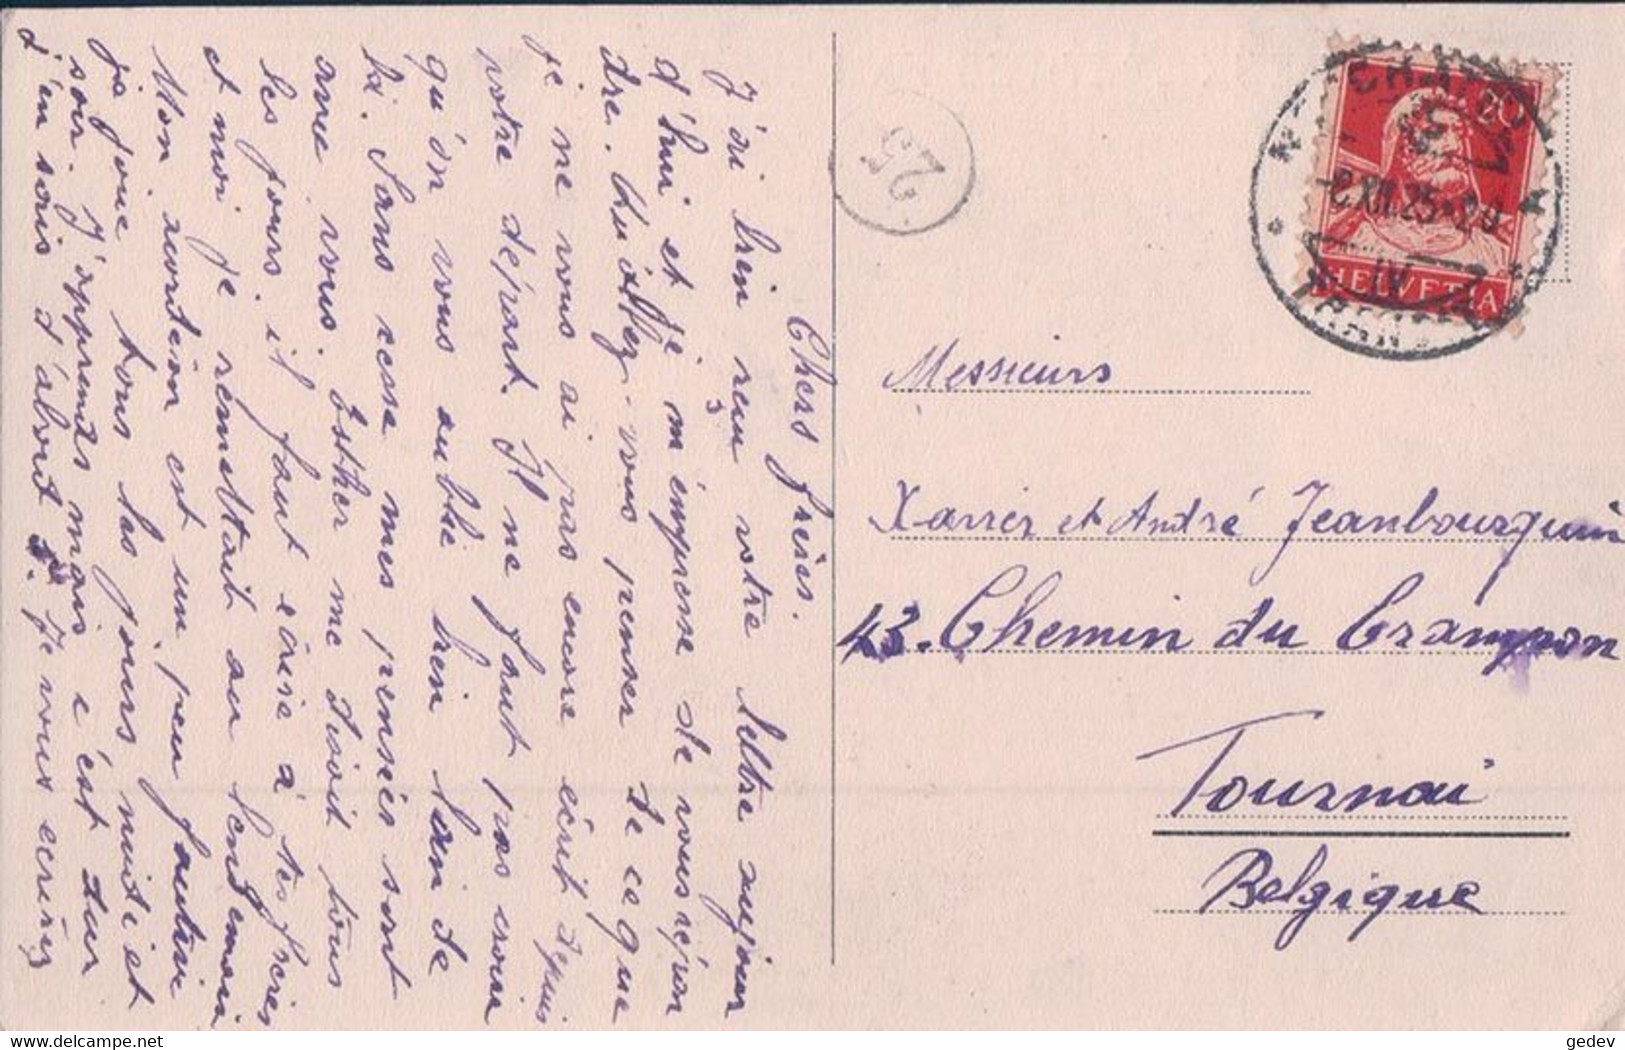 Chers frères.
J'ai bien reçu votre lettre aujour
d'hui et je m'empresse de vous répon
dre. Qu'allez-vous penser de ce que
je ne vous ai pas encore écrit depuis
votre départ. Il ne faut pas croire
qu'on vous oublie bien loin de
là. Sans cesse mes pensées sont
avec vous. Esther me disait tous
les jours, il faut écrire à tes frères
et moi je remettait au lendemain
Mon violon est un peu
je joue tous les jours midi et
soir. J'apprends mais c'est dur
J'en sais d'about Je vous écrirez
25
20
HELVETIA
-8.XII.25-20
IV
Messieurs
Xavier et André Jeanbourquin
43. Chemin du Crampon
Tournai
Belgique
gedev